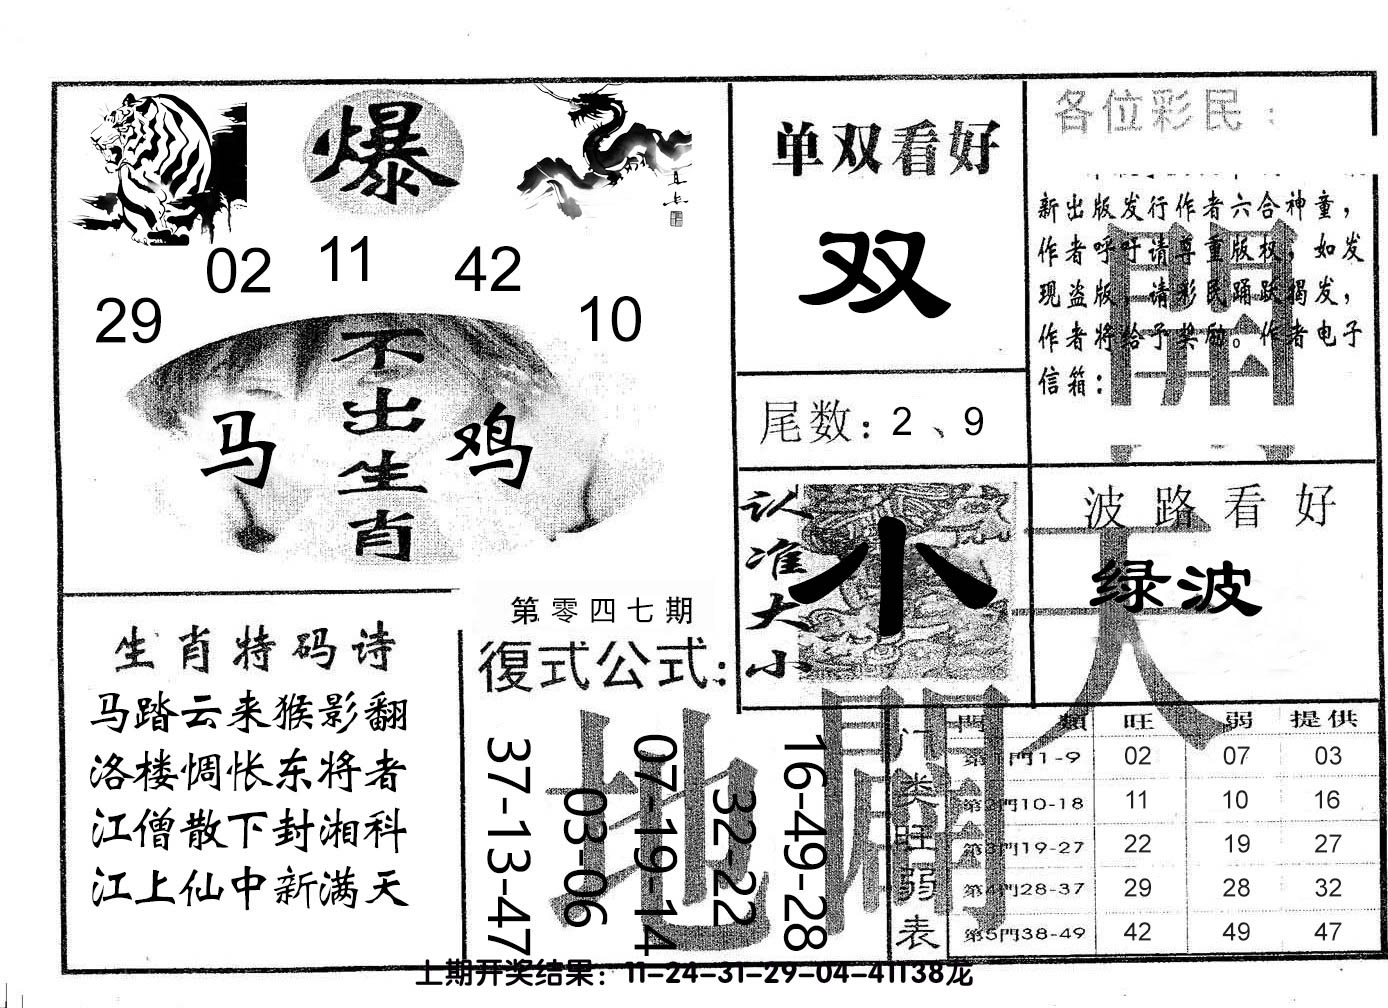 爆
02 11 42
29 10
不出生肖
马 鸡
单双看好
双
尾数：2、9
各位彩民：
新出版发行作者六合神童，
作者呼吁请尊重版权，如发
现盗版，请彩民踊跃揭发，
作者将给予奖励。作者电子
信箱：
認准大小
小
波路看好
绿波
開天
地開
生肖特码诗
马踏云来猴影翻
洛楼惆怅东将者
江僧散下封湘科
江上仙中新满天
第零四七期
復式公式：
37-13-47
03-06
07-19-14
32-22
16-49-28
门类旺弱表
門類 旺 弱 提供
第1門1-9 02 07 03
第2門10-18 11 10 16
第3門19-27 22 19 27
第4門28-37 29 28 32
第5門38-49 42 49 47
上期开奖结果：11-24-31-29-04-41T38龙